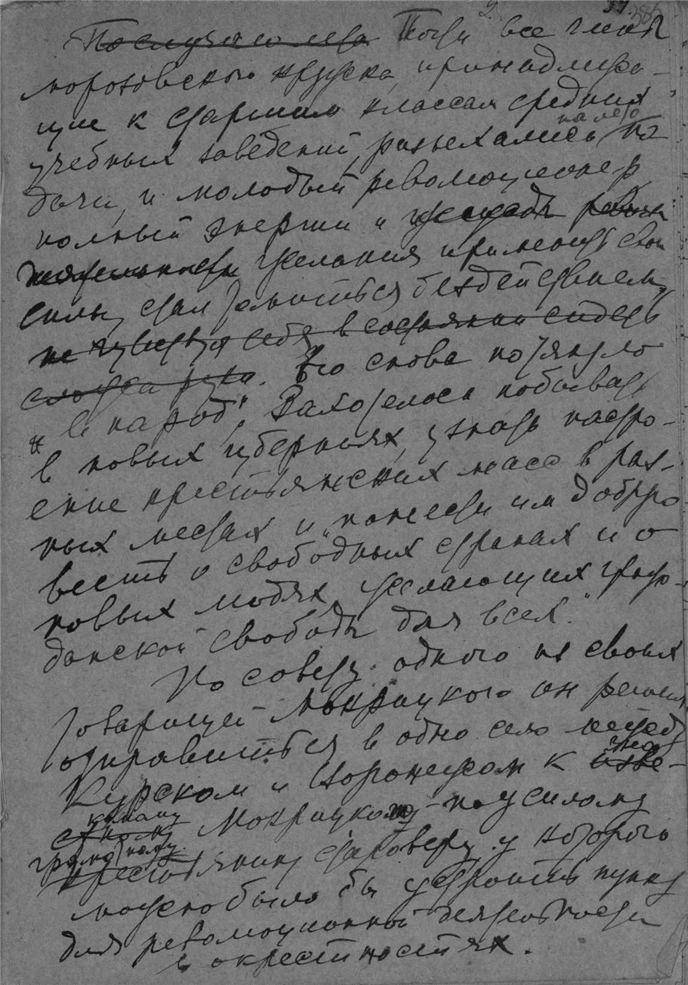 По случаю лета Тогда все члены
морозовского кружка, принадлежа-
щие к старшим классам средних
учебных заведений, разъехались на лето на
дачи, и молодый революционер,
полный энергии и жажды
желания применить свои
силы, стал томиться бездействием,
не чувствуя себя в состоянии сидеть
сложа руки. Его снова потянуло
"в народ". Захотелось побывать
в новых губерниях, узнать настро-
ение крестьянских масс в раз-
ных местах и "понести им добрую
весть о свободных странах и о
новых людях, желающих граж-
данской свободы для всех."
По совету одного из своих
товарищей Мокрицкого он решил
отправиться в одно село между
Курском и Воронежом к знако-
мому Мокрицкому-по усилому
крестьянину староверу, у которого
можно было бы устроить пункт
для революционной деятельности
в окрестностях.